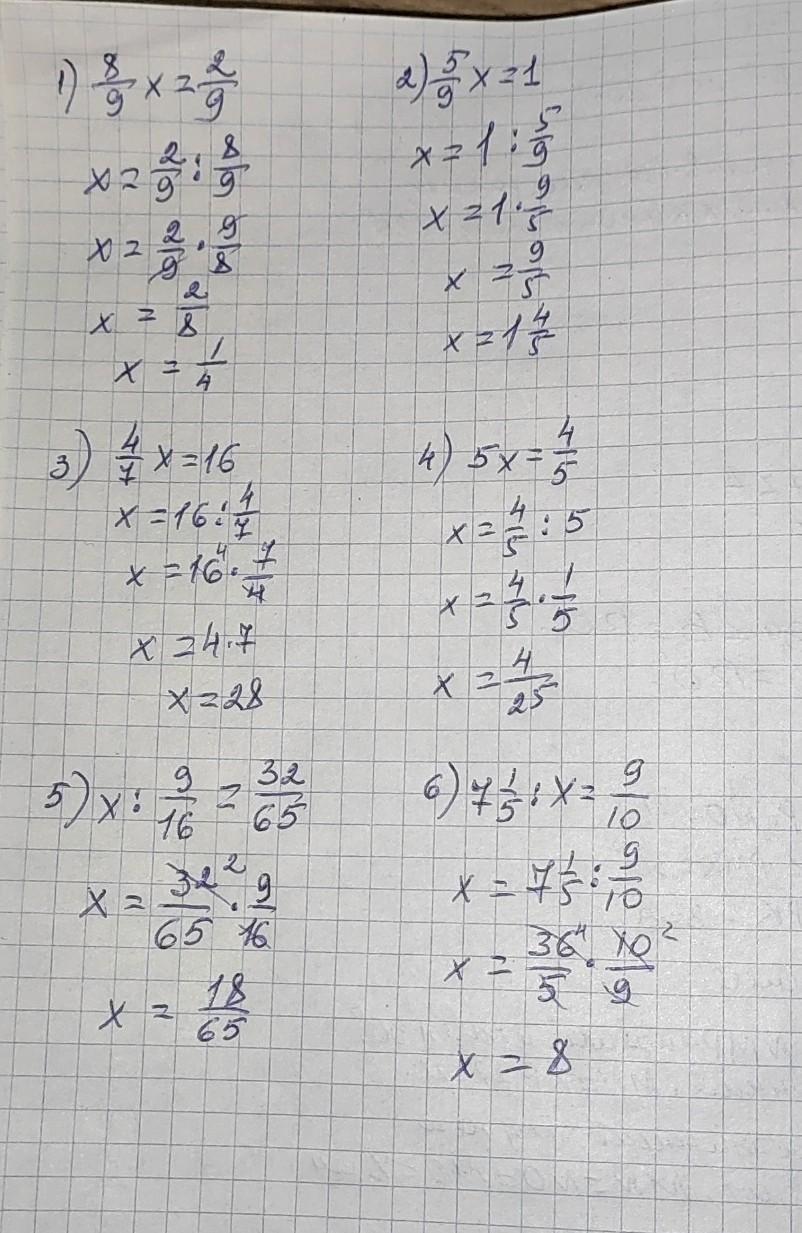 1) 8/9 x = 2/9
x = 2/9 : 8/9
x = 2/9 · 9/8
x = 2/8
x = 1/4
2) 5/9 x = 1
x = 1 : 5/9
x = 1 · 9/5
x = 9/5
x = 1 4/5
3) 4/7 x = 16
x = 16 : 4/7
x = 16 4 · 7/4
x = 4 · 7
x = 28
4) 5x = 4/5
x = 4/5 : 5
x = 4/5 · 1/5
x = 4/25
5) x : 9/16 = 32/65
x = 32 2/65 · 9/16
x = 18/65
6) 7 1/5 : x = 9/10
x = 7 1/5 : 9/10
x = 36 4/5 · 10 2/9
x = 8